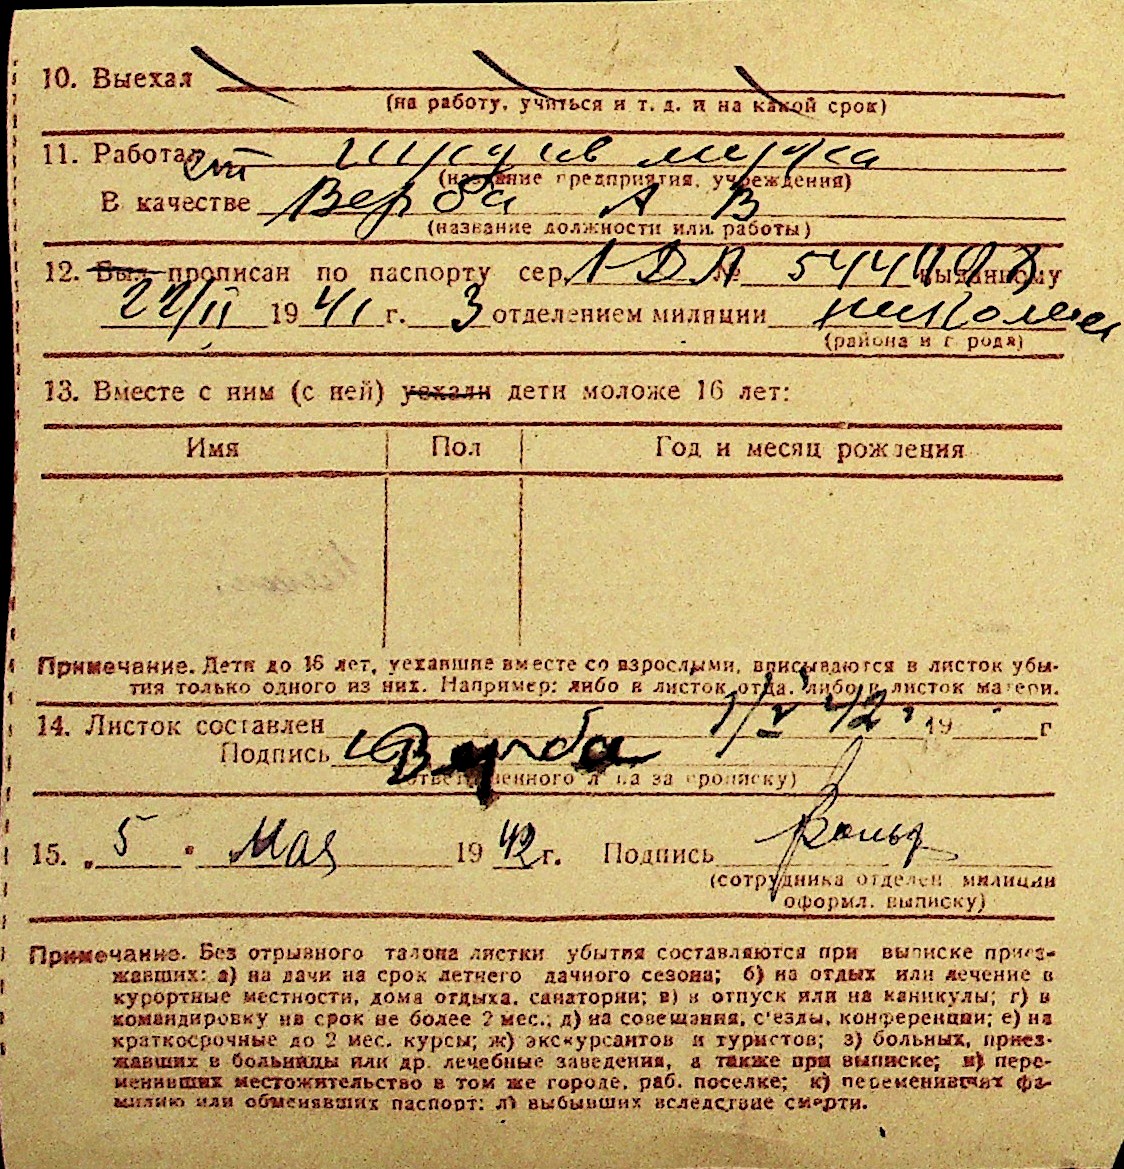 10. Выехал
(на работу, учиться и т. д. и на какой срок)
11. Работал иждив мужа
(название предприятия, учреждения)
В качестве Верба А В
(название должности или работы)
12. Был прописан по паспорту сер. № 544 выданному
22/II 1941 г. 3 отделением милиции
(района и города)
13. Вместе с ним (с ней) уехали дети моложе 16 лет:
Имя Пол Год и месяц рождения
Примечание. Дети до 16 лет, уехавшие вместе со взрослыми, вписываются в листок убы-
тия только одного из них. Например: либо в листок отца, либо в листок матери.
14. Листок составлен 1/V 42. 19 г
Подпись Верба
(ответственного лица за прописку)
15. „5" Мая 1942г. Подпись
(сотрудника отделен милиции
оформл. выписку)
Примечание. Без отрывного талона листки убытия составляются при выписке приез-
жавших: а) на дачи на срок летнего дачного сезона; б) на отдых или лечение в
курортные местности, дома отдыха, санатории; в) в отпуск или на каникулы; г) в
командировку на срок не более 2 мес.; д) на совещания, с'езды, конференции; е) на
краткосрочные до 2 мес. курсы; ж) экскурсантов и туристов; з) больных, приез-
жавших в больницы или др. лечебные заведения, а также при выписке; и) пере-
менивших местожительство в том же городе, раб. поселке; к) переменивших фа-
милию или обменявших паспорт; л) выбывших вследствие смерти.